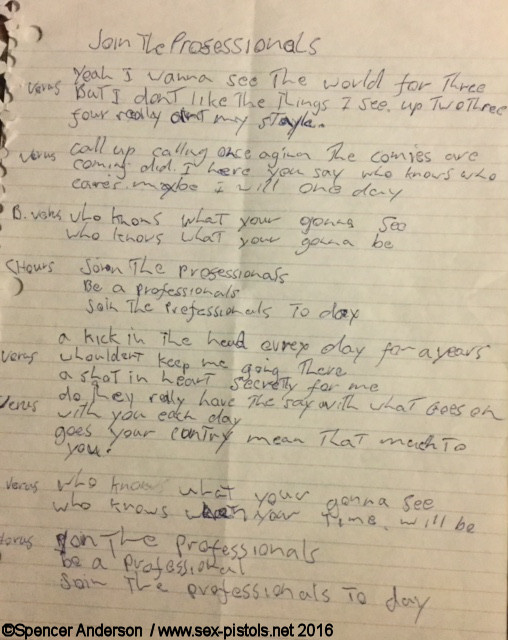 Join The Professionals
Verus Yeah I wanna see The world for Three
But I dont like The Things I see. up Two Three
four really my style.
Verus call up calling once agian The comies are
coming did I here you say who knows who
cares. maybe I will one day
B. Verus who knows what your gonna see
who knows what your gonna be
CHours Join The professionals
Be a professionals
Join The professionals To day
a kick in The head day for a years
Verus whouldent keep me going There
a shot in heart secretly for me
Verus do They really have The say with what goes on
with you each day
goes your contry mean That much To
you?
Verus who knows what your gonna see
who knows when your Time. will be
Jon The professionals
be a professional
Join The professionals To day
©Spencer Anderson / www.sex-pistols.net 2016